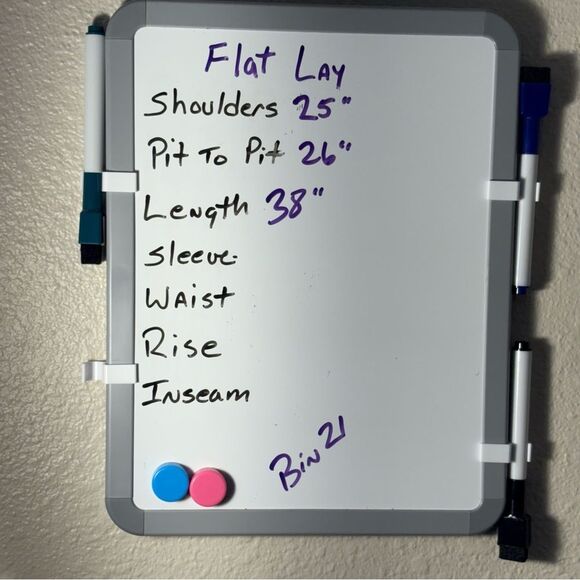 Flat Lay
Shoulders 25"
Pit To Pit 26"
Length 38"
Sleeve
Waist
Rise
Inseam
Bin 21